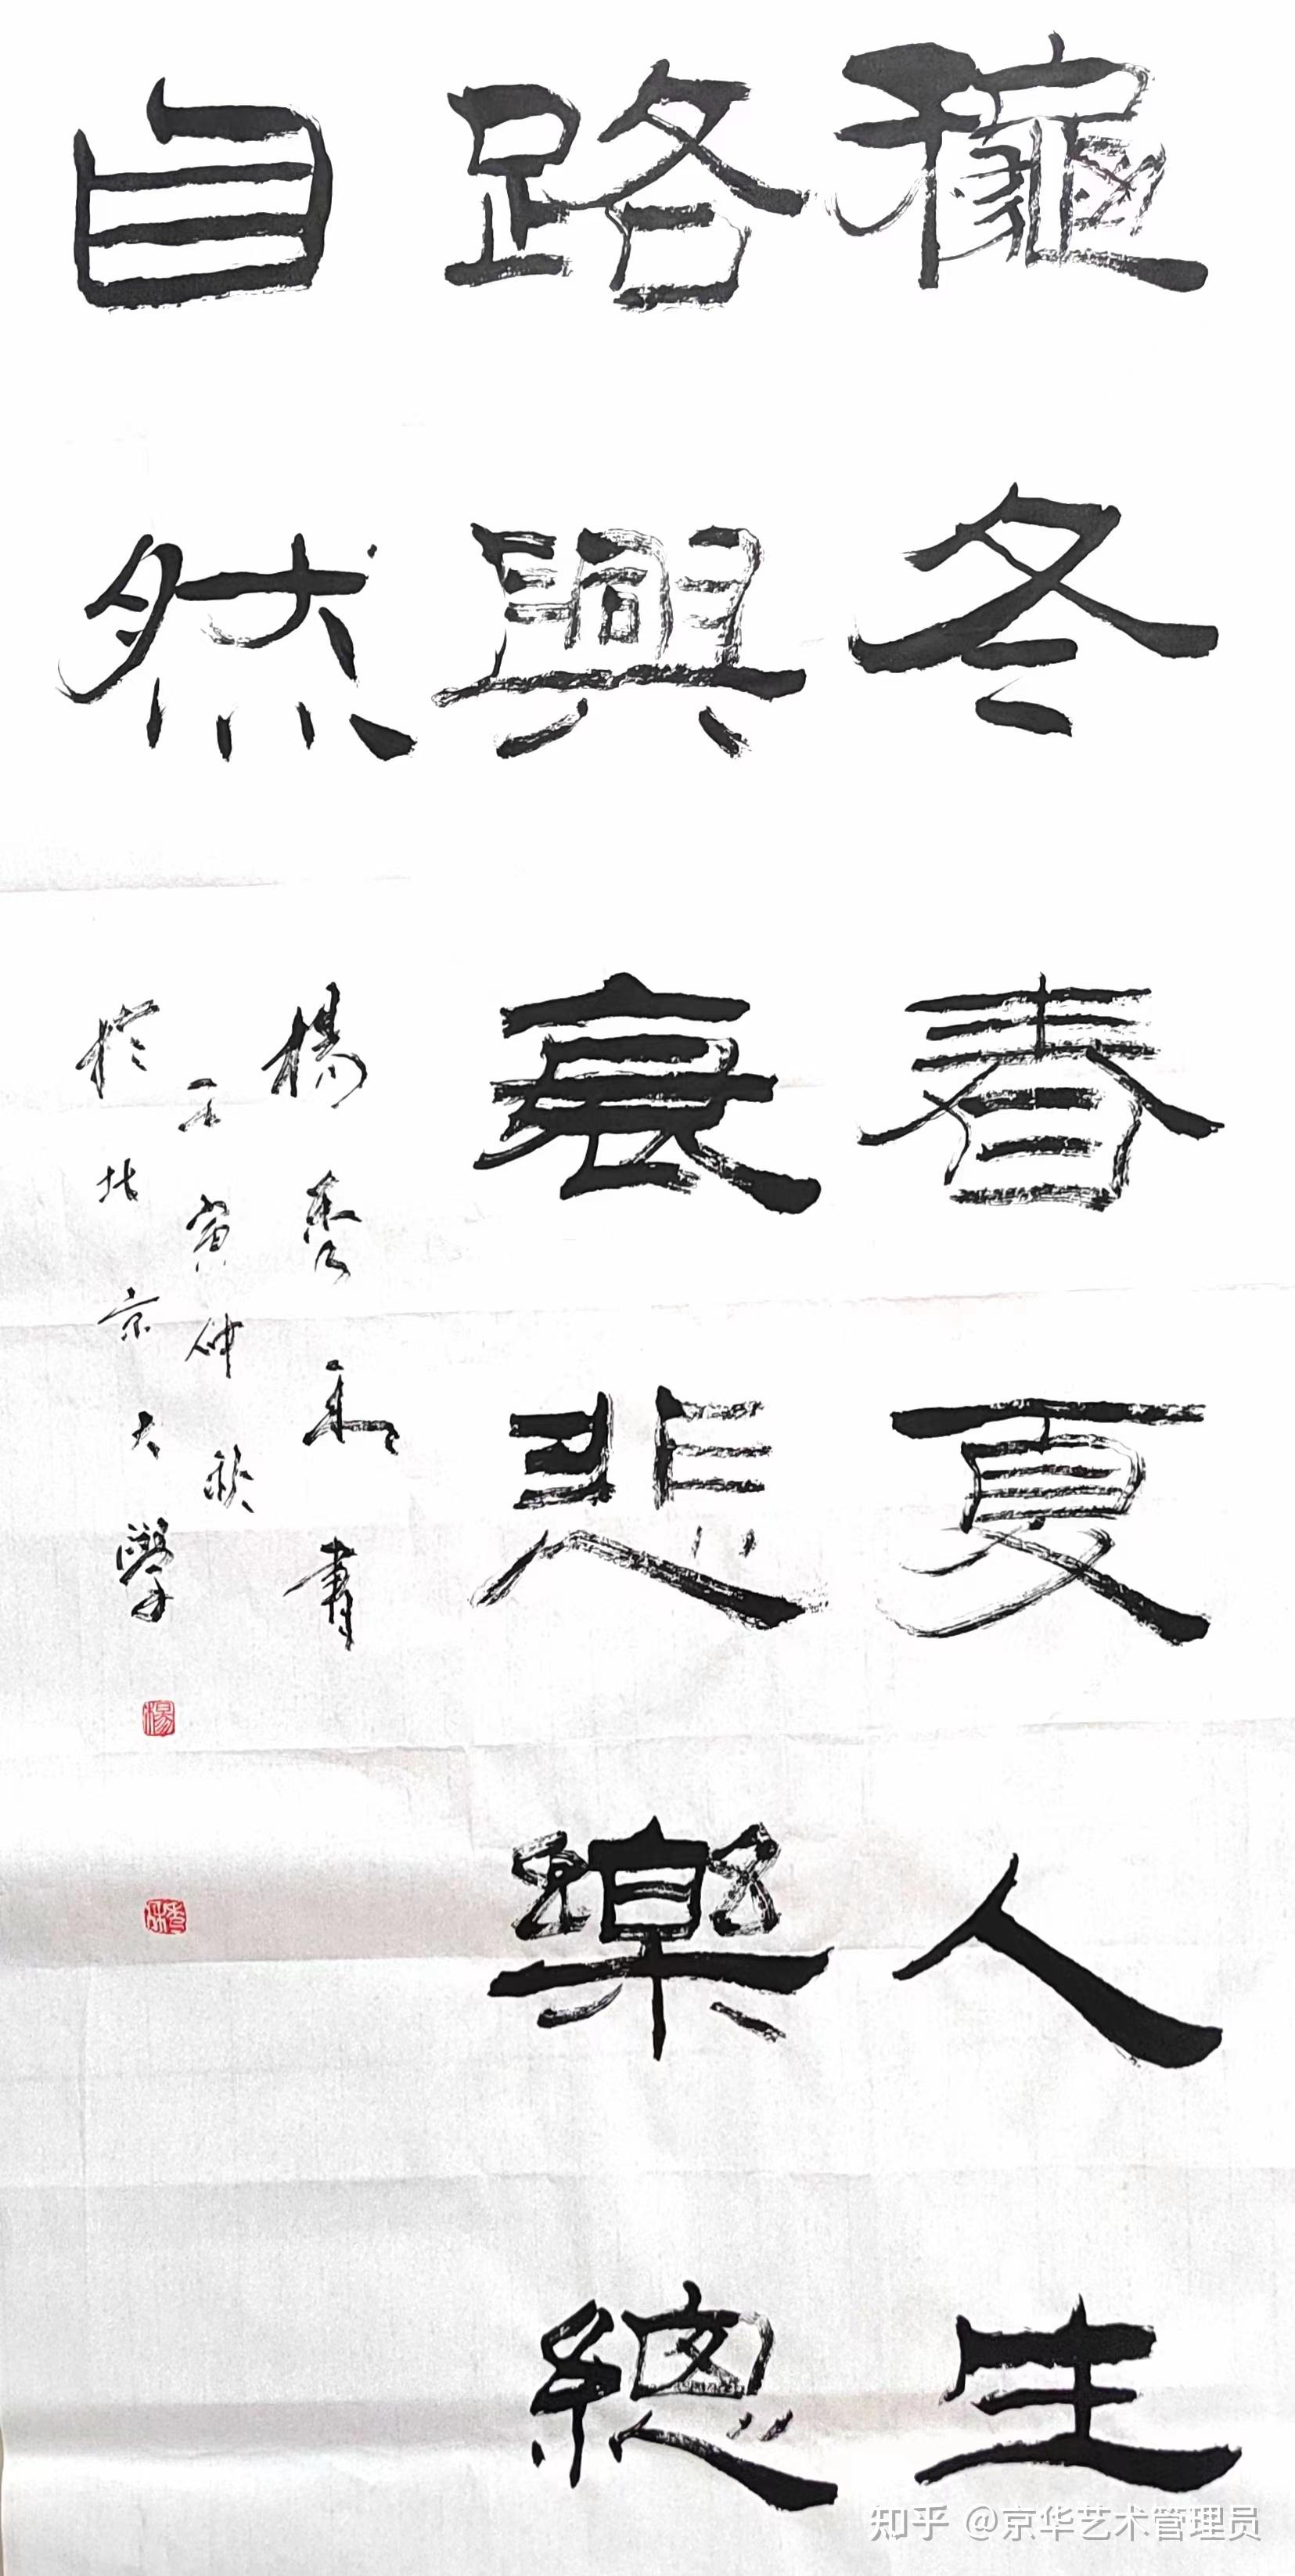 龝冬春夏人生
路興衰悲樂總
自然
楊秀和書
壬寅仲秋
於北京大學
楊
知乎 @京华艺术管理员